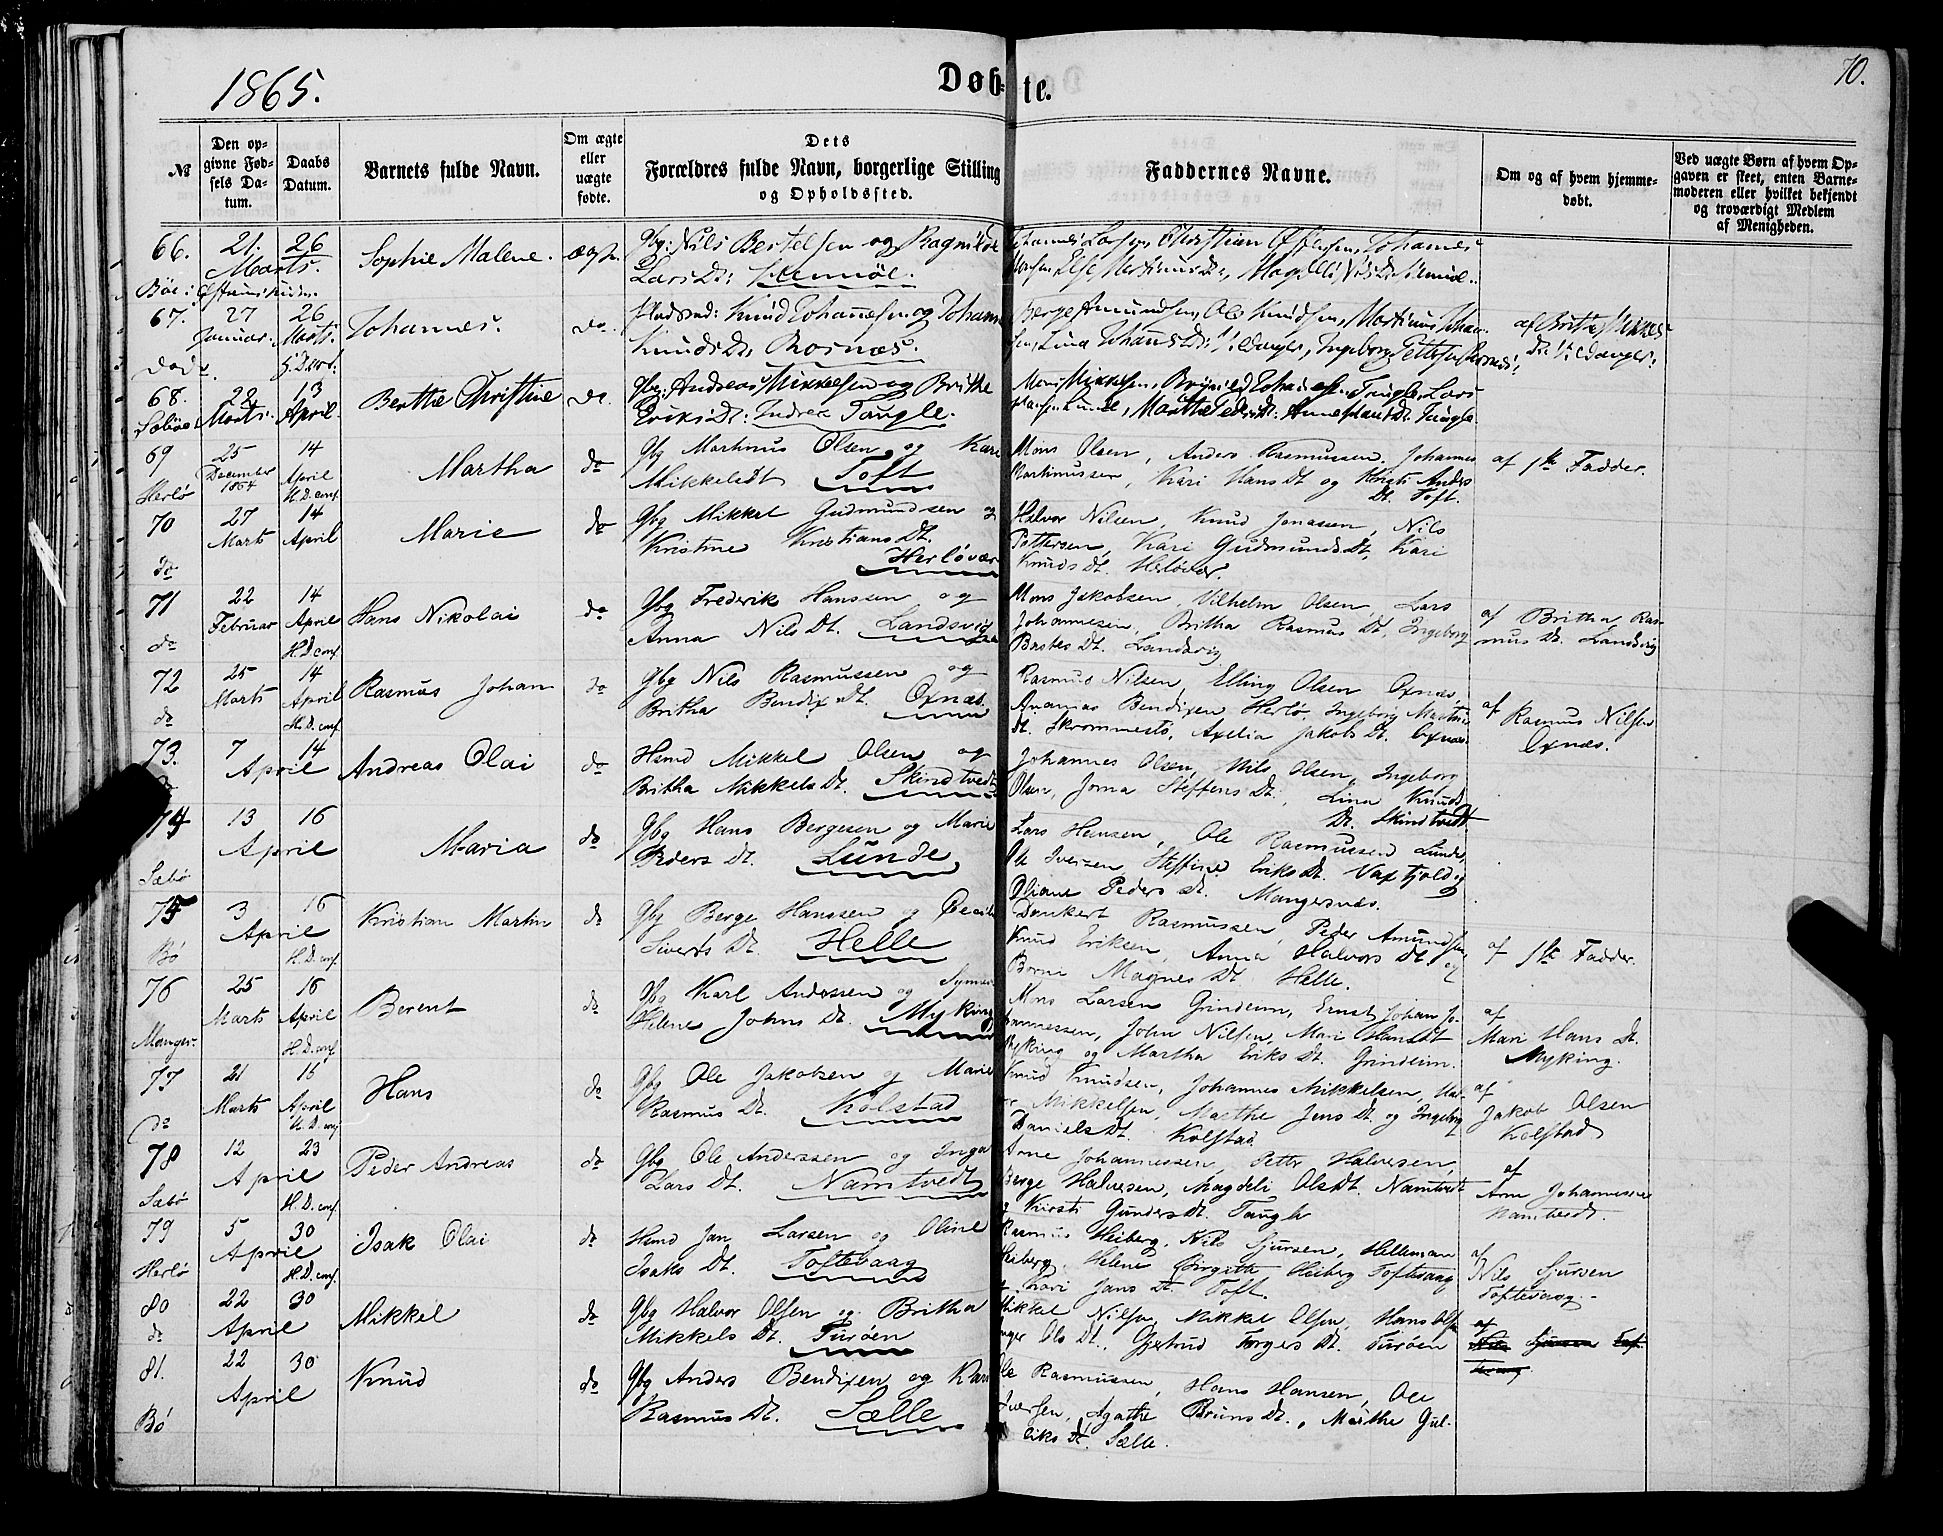 1865.
Døbte.
70.
№
Den opgivne Fødsels Datum.
Daabs Datum.
Barnets fulde Navn.
Om ægte eller uægte fødte.
Dets Forældres fulde Navn, borgerlige Stilling og Opholdssted.
Faddernes Navne.
Om og af hvem hjemmedøbt.
Ved uægte Børn af hvem Opgaven er skeet, enten Barnemoderen eller hvilket bekjendt og troværdigt Medlem af Menigheden.
66. 21. Marts. 26 Sophie Malene. ægte.
Gbr: Nils Bertelsen og Ragnilde
Lars Dt:
67. 27 Januar. 26 Marts. Johannes. do.
Pladsmd: Knud Johannesen og Johanne
Knuds Dt. Rosnæs.
Berge Amundsen, Ole Knudsen, Martinus
68. 28 Marts. 13 April. Berthe Christine do.
Gbr: Andreas Mikkelsen og Brithe
Eriks Dt: Indre Taugle.
Mons Mikkelsen,
Lunde, Marthe Peders Dt: Anne Taugle.
69 25 December 1864 14 April H. D. conf. Martha do
Herlø
Gbg Martinus Olsen og Kari
Mikkelsdt Toft
Mons Olsen, Anders Rasmussen, Johannes
Martinussen, Kari Hans Dt og Kirsti Anders
Dt. Toft.
af 1ste Fadder.
70 27 Marts 14 April Marie do
do
Gbg Mikkel Gudmundsen og
Kristine Kristians Dt.
Herløvær
Halvor Nilsen, Knud Jonassen, Nils
Pettersen, Kari Gudmunds Dt, Kari
Knuds Dt. Herløvær.
71 22 Februar 14 April H. D. conf. Hans Nikolai do
do
Gbg Frederik Hanssen og
Anna Nils Dt. Landsvig
Mons Jakobsen, Vilhelm Olsen, Lars
Johannesen, Britha Rasmus Dt, Ingeborg
Dt. Landsvig
af Britha Rasmus Dt. Landsvig
72 25 Marts 14 April H. D. conf. Rasmus Johan do
do
Gbg Nils Rasmussen og
Britha Bendix Dt. Oxnæs.
Rasmus Nilsen, Elling Olsen Oxnæs,
Ananias Bendixen Herlø, Ingeborg
Dt. Axelia Jakobs Dt. Oxnæs.
af Rasmus Nilsen
Oxnæs.
73. 7 April 14 Andreas Olai do
Hsmd Mikkel Olsen og
Britha Mikkels Dt. Skindtvedt
Johannes Olsen, Nils Olsen, Ingeborg
Olsen, Steffens Dt. Lina Knuds
Dt. Skindtvedt
74 13 April 16 Maria do
Sæbø
Gbg Hans Bergesen og Marie
Peders Dt. Lunde
Lars Hansen, Ole Rasmussen Lunde,
Ole Iversen, Eriks Dt.
Peders Dt. Mangersnæs.
75 3 April 16 H. D. conf. Kristian Martin do
Bø
Gbg Berge Hanssen og
Siverts Dt. Helle
Dankert Rasmussen, Peder Amundsen,
Knud Eriksen, Anna Halvors Dt. og
Magnes Dt Helle.
af 1ste Fadder.
76 25 Marts 16 April H. D. conf. Berent do
Manger
Gbg Karl Anderssen og
Helene Johns Dt. Myking
Mons Larsen Grindeim, Ernst Johan Johannessen, John Nilsen, Mari Hans Dt
Myking og Martha Eriks Dt. Grindeim.
af
Mari Hans Dt.
Myking.
77 21 Marts 16 April H. D. conf Hans do
do
Gbg Ole Jakobsen og Marie
Rasmus Dt. Kolstad
Knud Knudsen, Johannes Mikkelsen,
Mikkelsen, Marthe Jens Dt og Ingeborg
Daniels Dt. Kolstad
af
Jakob Olsen
Kolstad
78 12 April 23 H. D. conf. Peder Andreas do
Sæbø
Gbg Ole Anderssen og Inga
Lars Dt. Namtvedt
Arne Johannessen, Petter Halvorsen,
Berge Halvorsen, Magdeli Ols Dt. Namtvedt
og Kirsti Gunders Dt. Taugle
af
Arne Johannessen
Namtvedt.
79 5 April 30 H. D. conf. Isak Olai do
Herlø
Hsmd Jan Larsen og Oline
Isaks Dt. Toftevaag
Rasmus Heiberg, Nils Sjursen, Helleman
Heiberg, Helene Birgitte Heiberg Toftevaag
og Kari Jans Dt. Toft.
af
Nils Sjursen
Toftevaag.
80 22 April 30 Mikkel do
do
Gbg Halvor Olsen og Britha
Mikkels Dt. Turøen
Mikkel Nilsen, Mikkel Olsen, Hans Olsen
Ols Dt., Gjertrud Torgers Dt. Turøen
af
81. 22 April 30 Knud do
Bø
Gbg Anders Bendixen og Kari
Rasmus Dt. Sælle
Ole Rasmussen, Hans Hansen, Ole
Iversen, Agathe Bruns Dt., Marthe Gulliks Dt. Sælle.